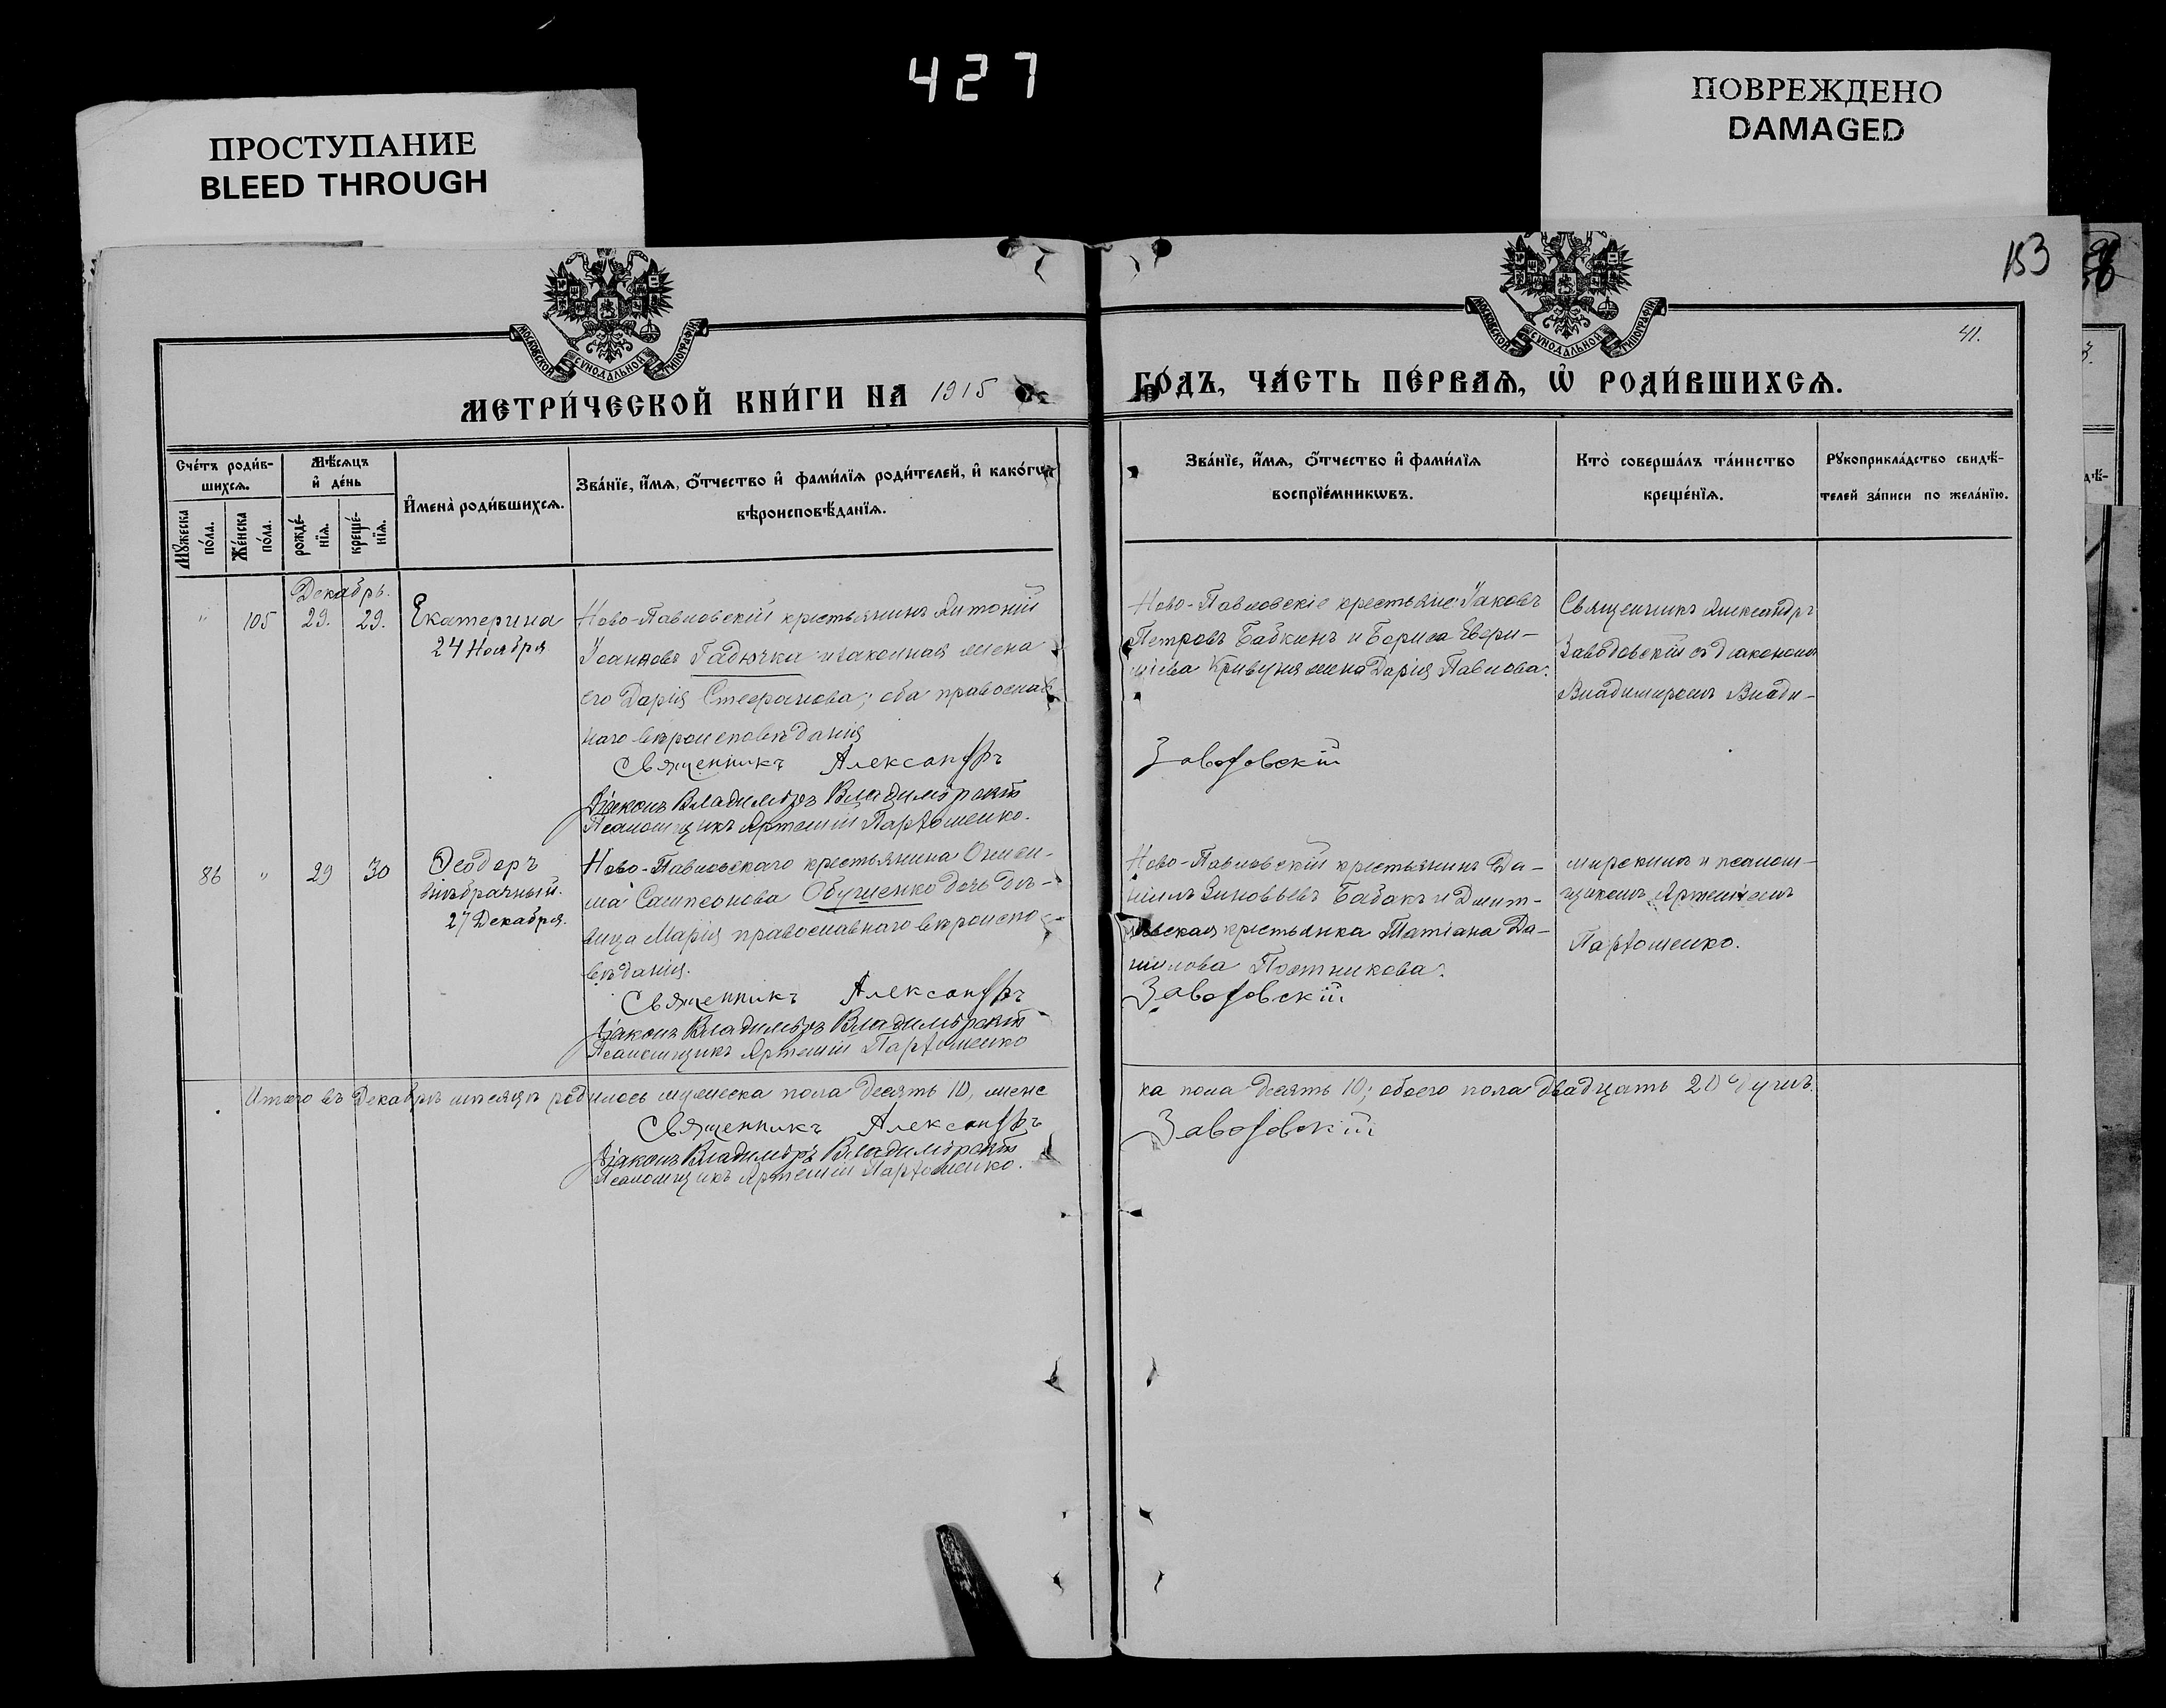 427
ПРОСТУПАНИЕ
BLEED THROUGH
ПОВРЕЖДЕНО
DAMAGED
153
41.
МОСКОВСКОЙ СѴНОДАЛЬНОЙ ТИПОГРАФІИ
МОСКОВСКОЙ СѴНОДАЛЬНОЙ ТИПОГРАФІИ
МЕТРИ́ЧЕСКОЙ КНИ́ГИ НА 1915
ГО́ДЪ, ЧА́СТЬ ПЕ́РВАѦ, Ѡ҆ РОДИ́ВШИХСѦ.
Сче́тъ роди́в-
шихсѧ.
Мѣ́сѧцъ
и҆ де́нь
Мꙋ́жеска по́ла.
Же́нска по́ла.
рожде́-
нїѧ.
креще́-
нїѧ.
И҆мена̀ роди́вшихсѧ.
Зва́нїе, и҆́мѧ, ѻ҆́тчество и҆ фами́лїѧ роди́телей, и҆ како́гѡ
вѣроисповѣ́данїѧ.
Зва́нїе, и҆́мѧ, ѻ҆́тчество и҆ фами́лїѧ
воспрїе́мникѡвъ.
Кто̀ соверша́лъ та́инство
креще́нїѧ.
Рꙋкоприкла́дство свидѣ́-
телей за́писи по жела́нїю.
Декабрь.
" 105 29. 29.
Екатерина
24 Ноября
Ново-Павловскій крестьянинъ Антоній
Іоанновъ Гадючка и законная жена
его Дарія Стефанова; оба православ
наго вѣроисповѣданія
Священникъ Александръ
Діаконъ Владиміръ Владиміров
Псаломщикъ Артемій Парѳоменко.
Ново-Павловскіе крестьяне: Іаковъ
Петровъ Бабкинъ и Бориса
Кривуня жена Дарія Павлова.
Заводовскій
Священникъ Александръ
Заводовскій съ діакономъ
Владиміромъ Влади-
86 " 29 30
Ѳеодоръ
внѣбрачный.
27 Декабря.
Ново-Павловскаго крестьянина Ониси-
ма Сампсонова Обушенко дочь дѣ-
вица Марія православнаго вѣроиспо
вѣданія.
Священникъ Александръ
Діаконъ Владиміръ Владиміров
Псаломщикъ Артемій Парѳоменко
Ново-Павловскій крестьянинъ Да-
ніилъ Зиновьевъ Бабакъ и Дмит-
крестьянка Татіана Да-
нилова Постникова.
Заводовскій
мірскимъ и псалом-
щикомъ Артеміемъ
Парѳоменко.
Итого въ Декабрѣ мѣсяцѣ родилось мужеска пола десять 10, женс
ка пола десять 10; обоего пола двадцать 20 душъ.
Священникъ Александръ
Заводовскій
Діаконъ Владиміръ Владиміров
Псаломщикъ Артемій Парѳоменко.